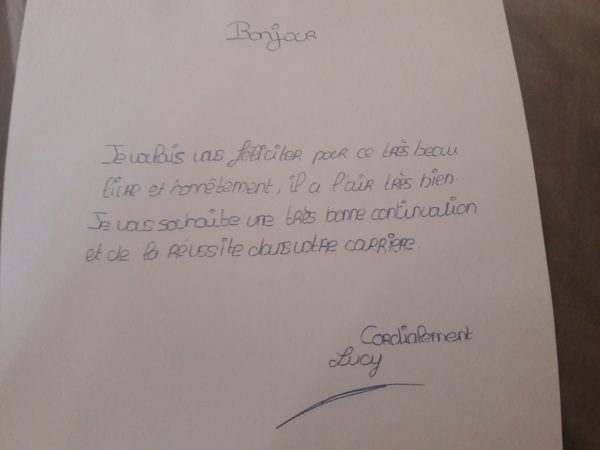 Bonjour
Je voulais vous féliciter pour ce très beau
livre et honnêtement, il a l'air très bien.
Je vous souhaite une très bonne continuation
et de la réussite dans votre carriere.
Cordialement
Lucy